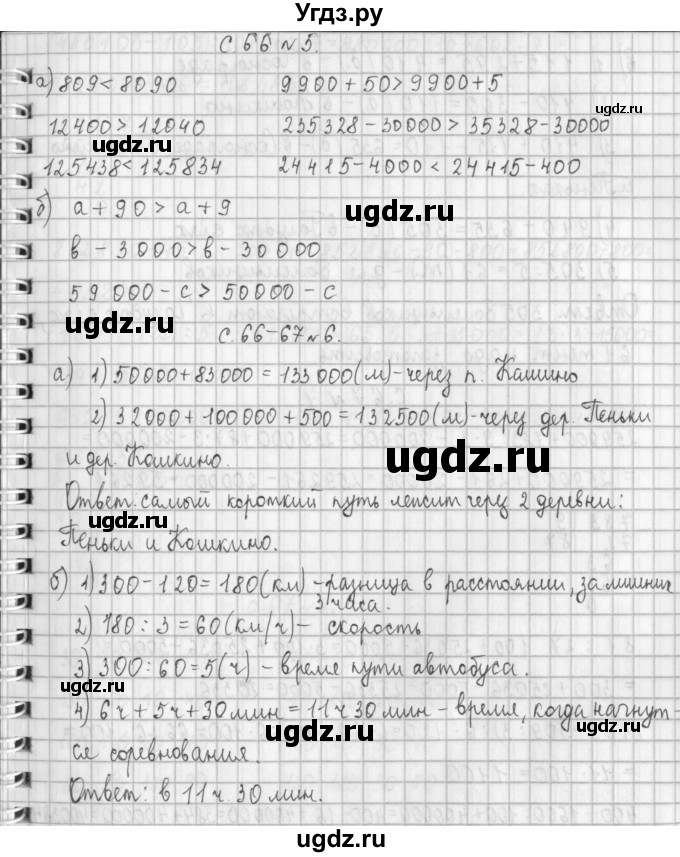 Угдз.ру
С 66 №5.
а) 809 < 8090 9900 + 50 > 9900 + 5
12400 > 12040 235328 - 30000 > 35328 - 30000
ugdz.ru
125438 < 125834 24415 - 4000 < 24415 - 400
б) а + 90 > а + 9
ugdz.ru
в - 3000 > в - 30000
59000 - с > 50000 - с
ugdz.ru
С. 66-67 №6.
а) 1) 50000 + 83000 = 133000 (м) - через п. Кашино
2) 32000 + 100000 + 500 = 132500 (м) - через дер. Пеньки
и дер. Кошкино.
ugdz.ru
Ответ: самый короткий путь лежит через 2 деревни:
ugdz.ru
Пеньки и Кошкино.
б) 1) 300 - 120 = 180 (км) - разница в расстоянии, за лишние
3 часа.
2) 180 : 3 = 60 (км/ч) - скорость
3) 300 : 60 = 5 (ч) - время пути автобуса.
ugdz.ru
4) 6 ч + 5 ч + 30 мин = 11 ч 30 мин - время, когда начнут-
ugdz.ru
ся соревнования.
ugdz.ru
Ответ: в 11 ч. 30 мин.
ugdz.ru